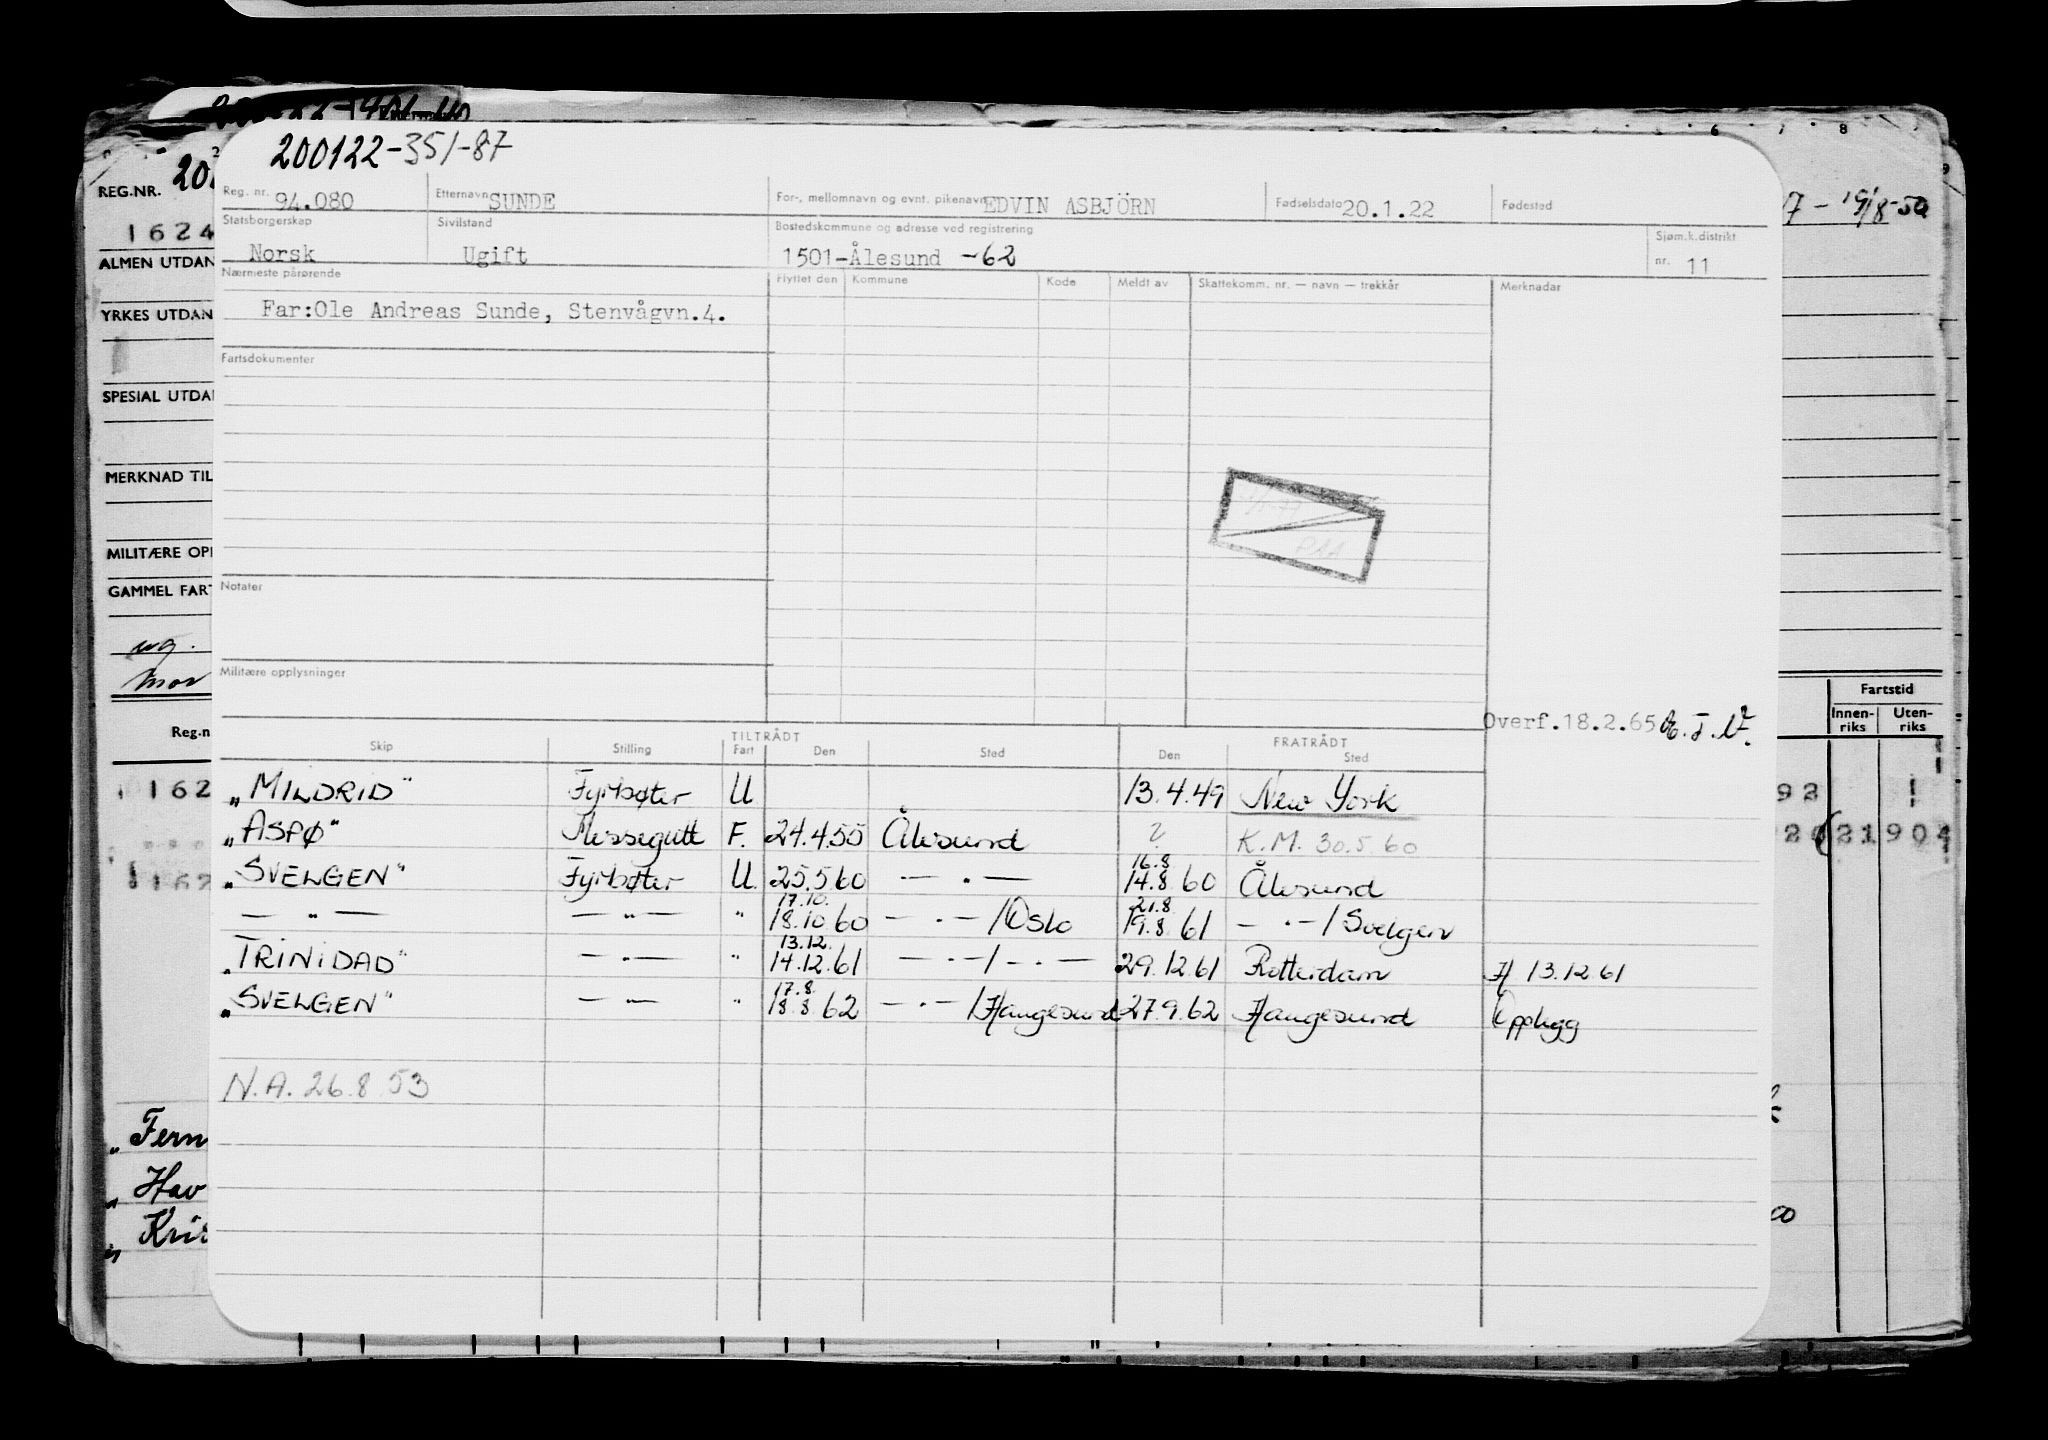 200122-351-87
REG.NR.
Reg. nr. 94.080 Etternavn SUNDE For-, mellomnavn og evnt. pikenavn EDVIN ASBJÖRN Fødselsdato 20.1.22 Fødested
1624
Statsborgerskap Norsk Sivilstand Ugift Bostedskommune og adresse ved registrering 1501-Ålesund -62 Sjøm.k.distrikt nr. 11
ALMEN UTDAN
Nærmeste pårørende Flyttet den Kommune Kode Meldt av Skattekomm. nr. — navn — trekkår Merknadar
YRKES UTDAN
Far:Ole Andreas Sunde, Stenvågvn.4.
Fartsdokumenter
SPESIAL UTDA
MERKNAD TIL
MILITÆRE OP
Notater
GAMMEL FART
ug.
mor
Militære opplysninger
Fartstid
Innen-riks Uten-riks
Reg.n
Overf.18.2.65
TILTRÅDT FRATRÅDT
Skip Stilling Fart Den Sted Den Sted
„MILDRID" Fyrbøter U 13.4.49 New York
„ASPØ" Messegutt F. 24.4.55 Ålesund ? K.M. 30.5.60
„SVELGEN" Fyrbøter U. 25.5.60 — " — 16.8 14.8.60 Ålesund
— " — — " — " 17.10. 18.10.60 — " — /Oslo 21.8 19.8.61 — " — / Svelgen
„TRINIDAD" — " — " 13.12. 14.12.61 — " — / — " — 29.12.61 Rotterdam H 13.12.61
„SVELGEN" — " — " 17.8 18.8.62 — " — /Haugesund 27.9.62 Haugesund Opplegg
N.A. 26.8.53
„Fern
„Hav
162
92
21904